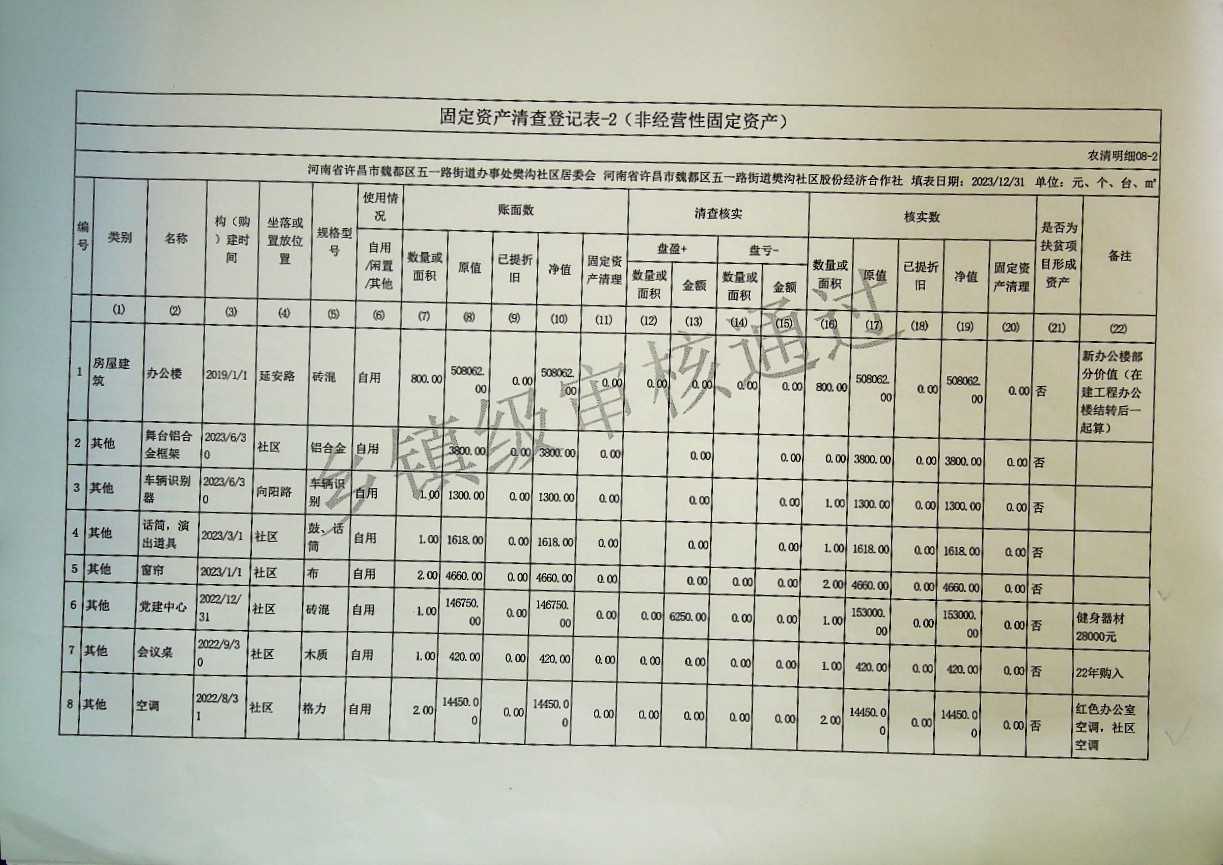 固定资产清查登记表-2（非经营性固定资产）
农清明细08-2
河南省许昌市魏都区五一路街道办事处樊沟社区居委会 河南省许昌市魏都区五一路街道樊沟社区股份经济合作社 填表日期：2023/12/31 单位：元、个、台、㎡
编号 类别 名称 构（购）建时间 坐落或置放位置 规格型号 使用情况 账面数 清查核实 核实数 是否为扶贫项目形成资产 备注
自用/闲置/其他 数量或面积 原值 已提折旧 净值 固定资产清理 盘盈+ 盘亏- 数量或面积 原值 已提折旧 净值 固定资产清理
数量或面积 金额 数量或面积 金额
(1) (2) (3) (4) (5) (6) (7) (8) (9) (10) (11) (12) (13) (14) (15) (16) (17) (18) (19) (20) (21) (22)
1 房屋建筑 办公楼 2019/1/1 延安路 砖混 自用 800.00 508062.00 0.00 508062.00 0.00 0.00 0.00 0.00 0.00 800.00 508062.00 0.00 508062.00 0.00 否 新办公楼部分价值（在建工程办公楼结转后一起算）
2 其他 舞台铝合金框架 2023/6/30 社区 铝合金 自用 3800.00 0.00 3800.00 0.00 0.00 0.00 0.00 3800.00 0.00 3800.00 0.00 否
3 其他 车辆识别器 2023/6/30 向阳路 车辆识别 自用 1.00 1300.00 0.00 1300.00 0.00 0.00 0.00 1.00 1300.00 0.00 1300.00 0.00 否
4 其他 话筒，演出道具 2023/3/1 社区 鼓、话筒 自用 1.00 1618.00 0.00 1618.00 0.00 0.00 0.00 1.00 1618.00 0.00 1618.00 0.00 否
5 其他 窗帘 2023/1/1 社区 布 自用 2.00 4660.00 0.00 4660.00 0.00 0.00 0.00 0.00 2.00 4660.00 0.00 4660.00 0.00 否
6 其他 党建中心 2022/12/31 社区 砖混 自用 1.00 146750.00 0.00 146750.00 0.00 0.00 6250.00 0.00 0.00 1.00 153000.00 0.00 153000.00 0.00 否 健身器材28000元
7 其他 会议桌 2022/9/30 社区 木质 自用 1.00 420.00 0.00 420.00 0.00 0.00 0.00 0.00 0.00 1.00 420.00 0.00 420.00 0.00 否 22年购入
8 其他 空调 2022/8/31 社区 格力 自用 2.00 14450.00 0.00 14450.00 0.00 0.00 0.00 0.00 0.00 2.00 14450.00 0.00 14450.00 0.00 否 红色办公室空调，社区空调
乡镇级审核通过